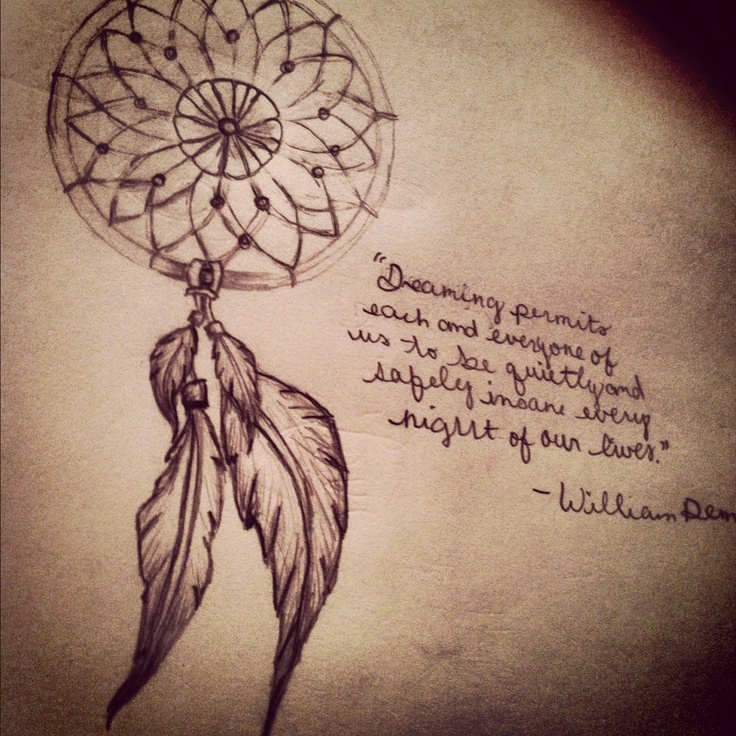 "Dreaming permits
each and everyone of
us to be quietly and
safely insane every
night of our lives."
- William Dem